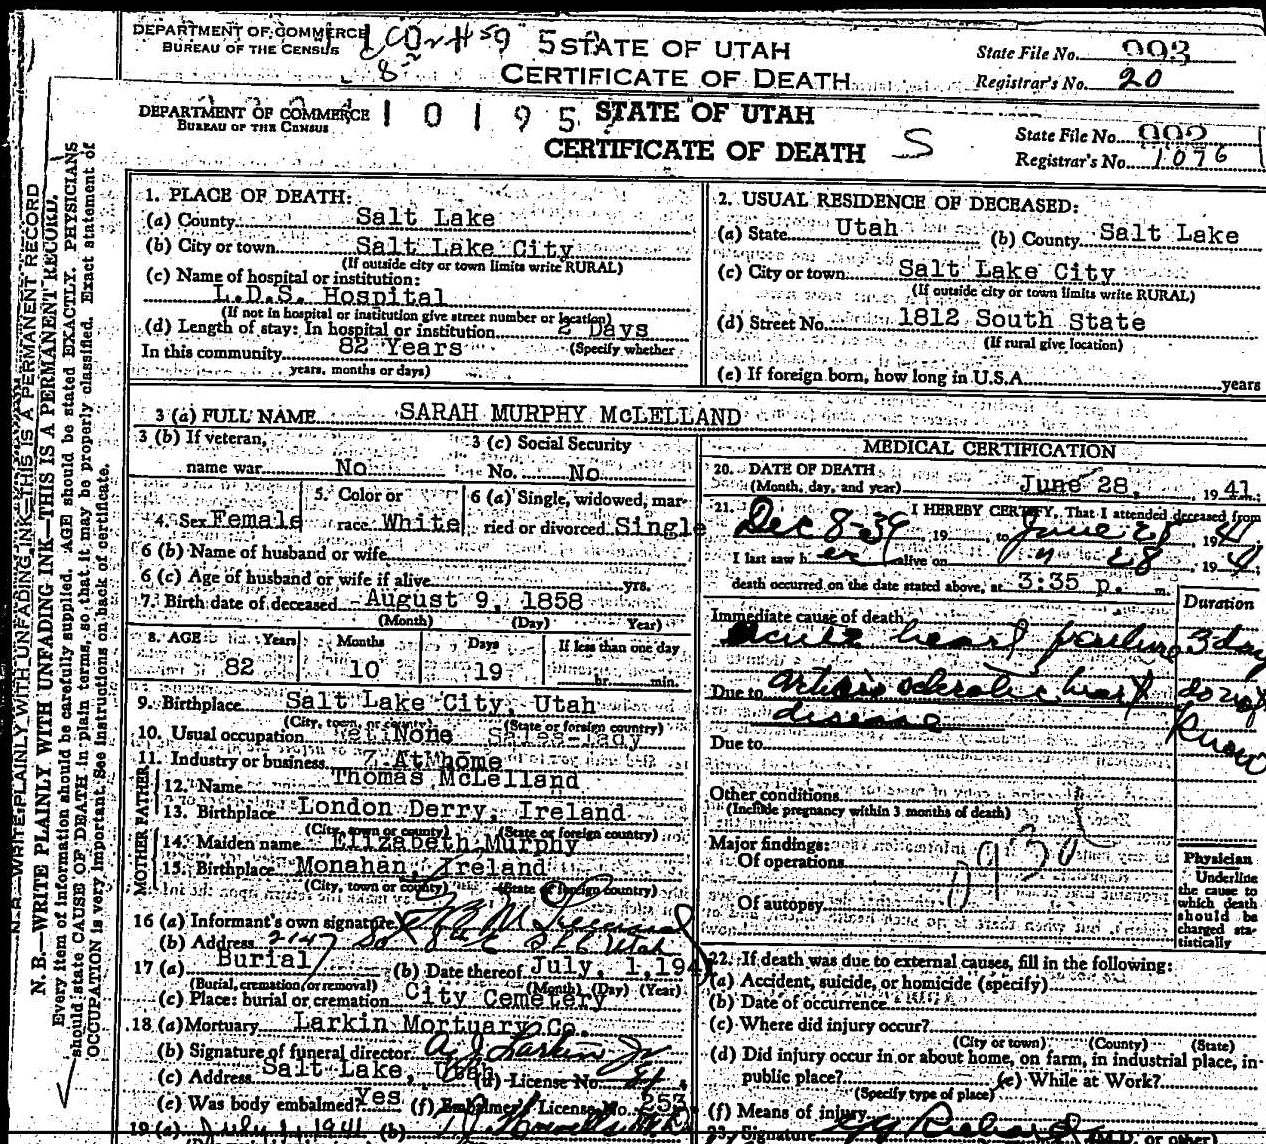 DEPARTMENT OF COMMERCE
BUREAU OF THE CENSUS
STATE OF UTAH
CERTIFICATE OF DEATH
State File No. 993
Registrar's No. 20
DEPARTMENT OF COMMERCE
BUREAU OF THE CENSUS
1 0 1 9 5
STATE OF UTAH
CERTIFICATE OF DEATH S
State File No. 992
Registrar's No. 1076
N. B.—WRITE PLAINLY WITH UNFADING INK—THIS IS A PERMANENT RECORD
N. B.—WRITE PLAINLY WITH UNFADING INK—THIS IS A PERMANENT RECORD.
Every item of information should be carefully supplied. AGE should be stated EXACTLY. PHYSICIANS
should state CAUSE OF DEATH in plain terms, so that it may be properly classified. Exact statement of
OCCUPATION is very important. See instructions on back of certificate.
1. PLACE OF DEATH:
(a) County Salt Lake
(b) City or town Salt Lake City
(If outside city or town limits write RURAL)
(c) Name of hospital or institution:
L.D.S. Hospital
(If not in hospital or institution give street number or location)
(d) Length of stay: In hospital or institution 2 Days
In this community 82 Years (Specify whether
years, months or days)
2. USUAL RESIDENCE OF DECEASED:
(a) State Utah (b) County Salt Lake
(c) City or town Salt Lake City
(If outside city or town limits write RURAL)
(d) Street No. 1812 South State
(If rural give location)
(e) If foreign born, how long in U.S.A. years
3 (a) FULL NAME SARAH MURPHY McLELLAND
3 (b) If veteran, 3 (c) Social Security
name war No No. No
4. Sex Female 5. Color or race White 6 (a) Single, widowed, married or divorced Single
6 (b) Name of husband or wife
6 (c) Age of husband or wife if alive yrs.
7. Birth date of deceased August 9, 1858
(Month) (Day) (Year)
8. AGE Years Months Days If less than one day
82 10 19 hr. min.
9. Birthplace Salt Lake City, Utah
(City, town, or county) (State or foreign country)
10. Usual occupation None
11. Industry or business At home
FATHER
12. Name Thomas McLelland
13. Birthplace London Derry, Ireland
(City, town or county) (State or foreign country)
MOTHER
14. Maiden name Elizabeth Murphy
15. Birthplace Monahan, Ireland
(City, town or county) (State or foreign country)
16 (a) Informant's own signature
(b) Address 2147 So Utah
17 (a) Burial (b) Date thereof July, 1, 194
(Burial, cremation, or removal) (Month) (Day) (Year)
(c) Place: burial or cremation City Cemetery
18 (a) Mortuary Larkin Mortuary Co.
(b) Signature of funeral director A J Larkin Jr
(c) Address Salt Lake, Utah (d) License No. 24
(e) Was body embalmed? Yes (f) Embalmer's License No.
19 (a) July 1, 1941 (b)
MEDICAL CERTIFICATION
20. DATE OF DEATH
(Month, day, and year) June 28, 19 41
21. I HEREBY CERTIFY, That I attended deceased from
Dec 8-39 19 to June 28, 19 41
I last saw h er alive on " 28, 19 41
death occurred on the date stated above, at 3:35 p. m.
Duration
Immediate cause of death
acute heart failure 3 day
Due to arterio sclerotic heart do not
disease know
Due to
Other conditions
(Include pregnancy within 3 months of death)
Major findings:
Of operations
Of autopsy
Physician
Underline
the cause to
which death
should be
charged sta-
tistically
22. If death was due to external causes, fill in the following:
(a) Accident, suicide, or homicide (specify)
(b) Date of occurrence
(c) Where did injury occur?
(City or town) (County) (State)
(d) Did injury occur in or about home, on farm, in industrial place, in
public place? (e) While at Work?
(Specify type of place)
(f) Means of injury
23. Signature